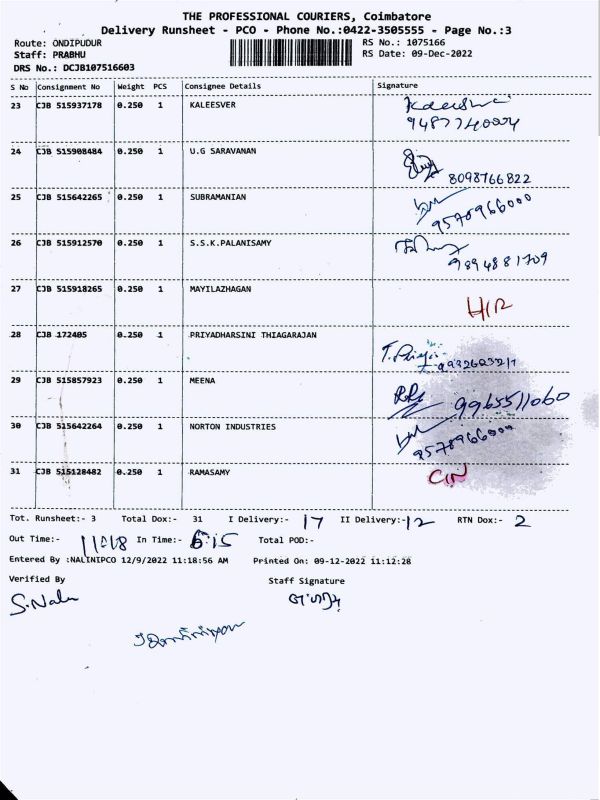 THE PROFESSIONAL COURIERS, Coimbatore
Delivery Runsheet - PCO - Phone No.:0422-3505555 - Page No.:3
Route: ONDIPUDUR RS No.: 1075166
Staff: PRABHU RS Date: 09-Dec-2022
DRS No.: DCJB107516603
S No Consignment No Weight PCS Consignee Details Signature
23 CJB 515937178 0.250 1 KALEESVER
24 CJB 515908484 0.250 1 U.G SARAVANAN
8098766822
25 CJB 515642265 0.250 1 SUBRAMANIAN
9578966000
26 CJB 515912570 0.250 1 S.S.K.PALANISAMY
9894881709
27 CJB 515918265 0.250 1 MAYILAZHAGAN
28 CJB 172405 0.250 1 PRIYADHARSINI THIAGARAJAN
29 CJB 515857923 0.250 1 MEENA
9965511060
30 CJB 515642264 0.250 1 NORTON INDUSTRIES
9578966000
31 CJB 515128482 0.250 1 RAMASAMY
CIN
Tot. Runsheet:- 3 Total Dox:- 31 I Delivery:- 17 II Delivery:- 12 RTN Dox:- 2
Out Time:- In Time:- 6:15 Total POD:-
Entered By :NALINIPCO 12/9/2022 11:18:56 AM Printed On: 09-12-2022 11:12:28
Verified By Staff Signature
S.Nalini